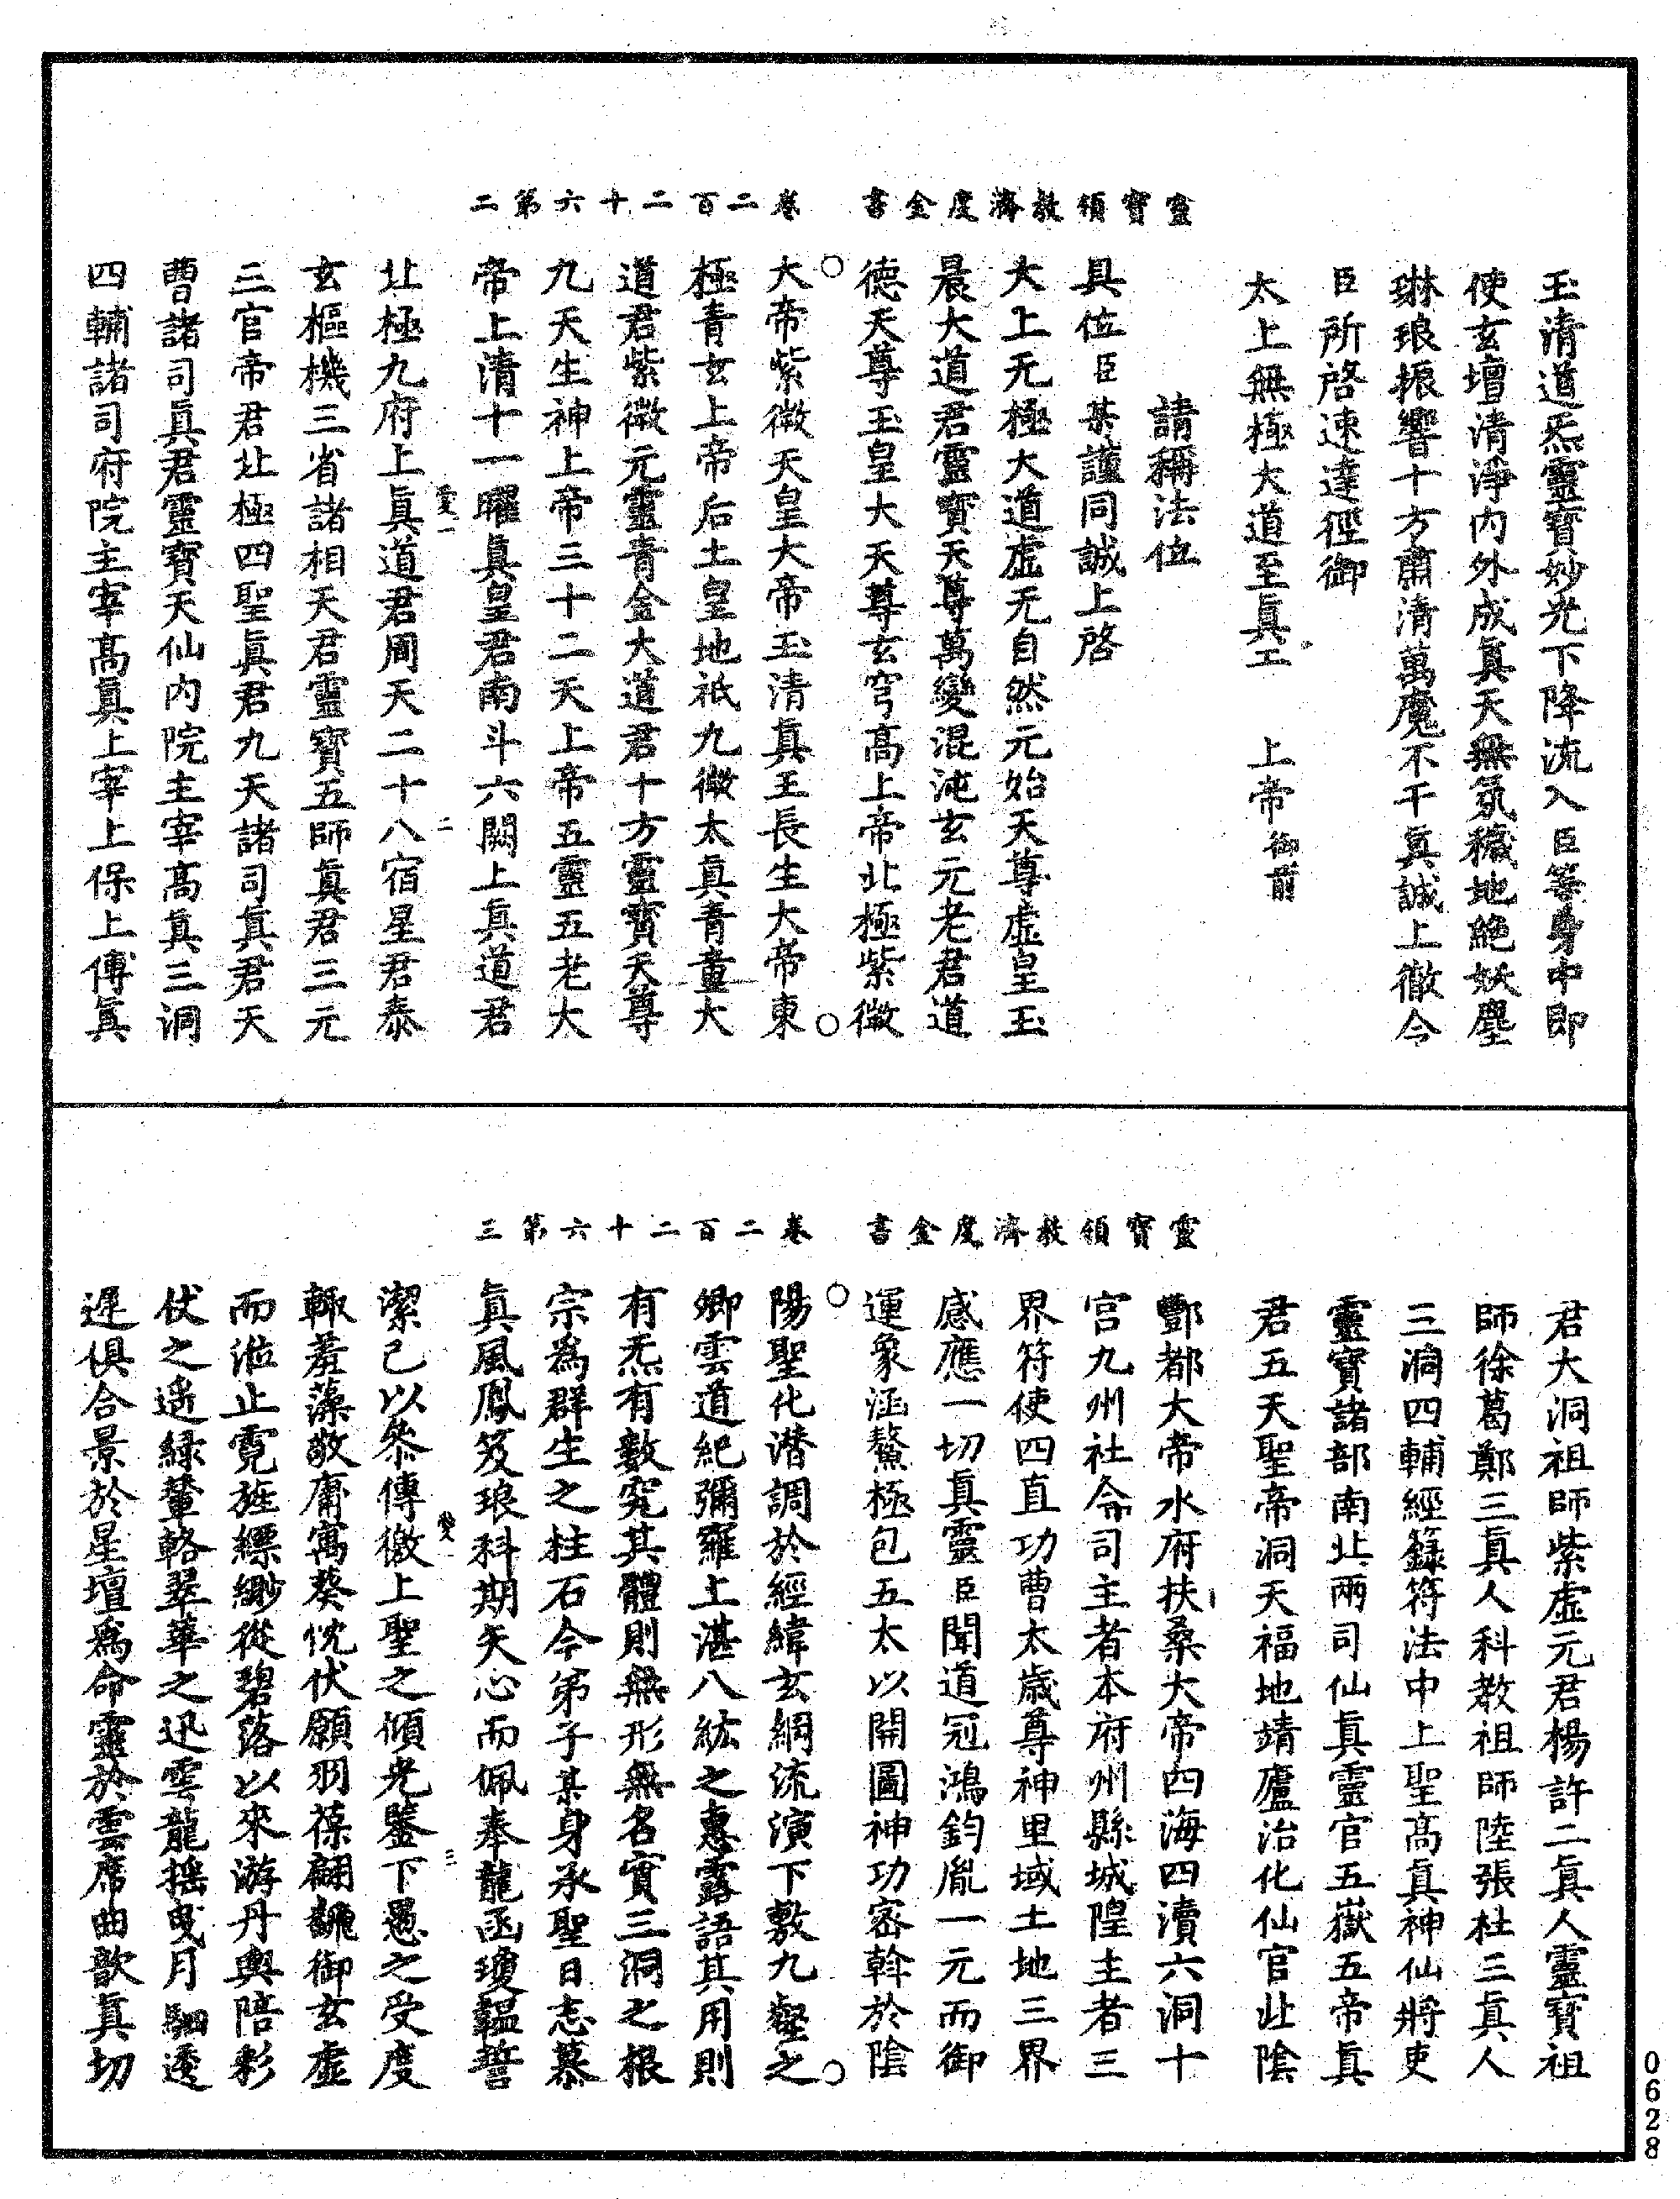 靈寶領教濟度金書　卷二百二十六第二
玉清道炁靈寶妙光下降流入臣等身中即
使玄壇清淨內外成真天無氛穢地絕妖塵
琳琅振響十方肅清萬魔不干真誠上徹令
臣所啓速達徑御
太上無極大道至真工　上帝御前
請稱法位
具位臣某謹同誠上啓
大上无極大道虛无自然元始天尊虛皇玉
晨大道君靈寶天尊萬變混沌玄元老君道
德天尊玉皇大天尊玄穹高上帝北極紫微
大帝紫微天皇大帝玉清真王長生大帝東
極青玄上帝后土皇地祇九微太真青童大
道君紫微元靈青金大道君十方靈寶天尊
九天生神上帝三十二天上帝五靈五老大
帝上清十一曜真皇君南斗六闕上真道君
北極九府上真道君周天二十八宿星君泰
玄樞機三省諸相天君靈寶五師真君三元
三官帝君北極四聖真君九天諸司真君天
曹諸司真君靈寶天仙內院主宰高真三洞
四輔諸司府院主宰高真上宰上保上傅真
靈寶領教濟度金書　卷二百二十六第三
君大洞祖師紫虛元君楊許二真人靈寶祖
師徐葛鄭三真人科教祖師陸張杜三真人
三洞四輔經籙符法中上聖高真神仙將吏
靈寶諸部南北兩司仙真靈官五嶽五帝真
君五天聖帝洞天福地靖廬治化仙官北陰
酆都大帝水府扶桑大帝四海四瀆六洞十
宮九州社令司主者本府州縣城隍主者三
界符使四直功曹太歲尊神里域土地三界
感應一切真靈臣聞道冠鴻鈞胤一元而御
運象涵鰲極包五太以開圖神功密斡於陰
陽聖化潛調於經緯玄綱流演下敷九壑之
卿雲道紀彌羅上湛八紘之惠露語其用則
有炁有數究其體則無形無名實三洞之根
宗為群生之柱石今弟子某身承聖日志慕
真風鳳笈琅科期矢心而佩奉龍函瓊韞誓
潔己以參傳徼上聖之傾光鑒下愚之受度
輒羞藻敬庸寓葵忱伏願羽葆翩飜御玄虛
而涖止霓旌縹緲從碧落以來游丹輿陪彩
伏之遙綠輦輅翠華之迅雲龍搖曳月駟逶
遲俱合景於星壇為命靈於雲席曲歆真切
0628